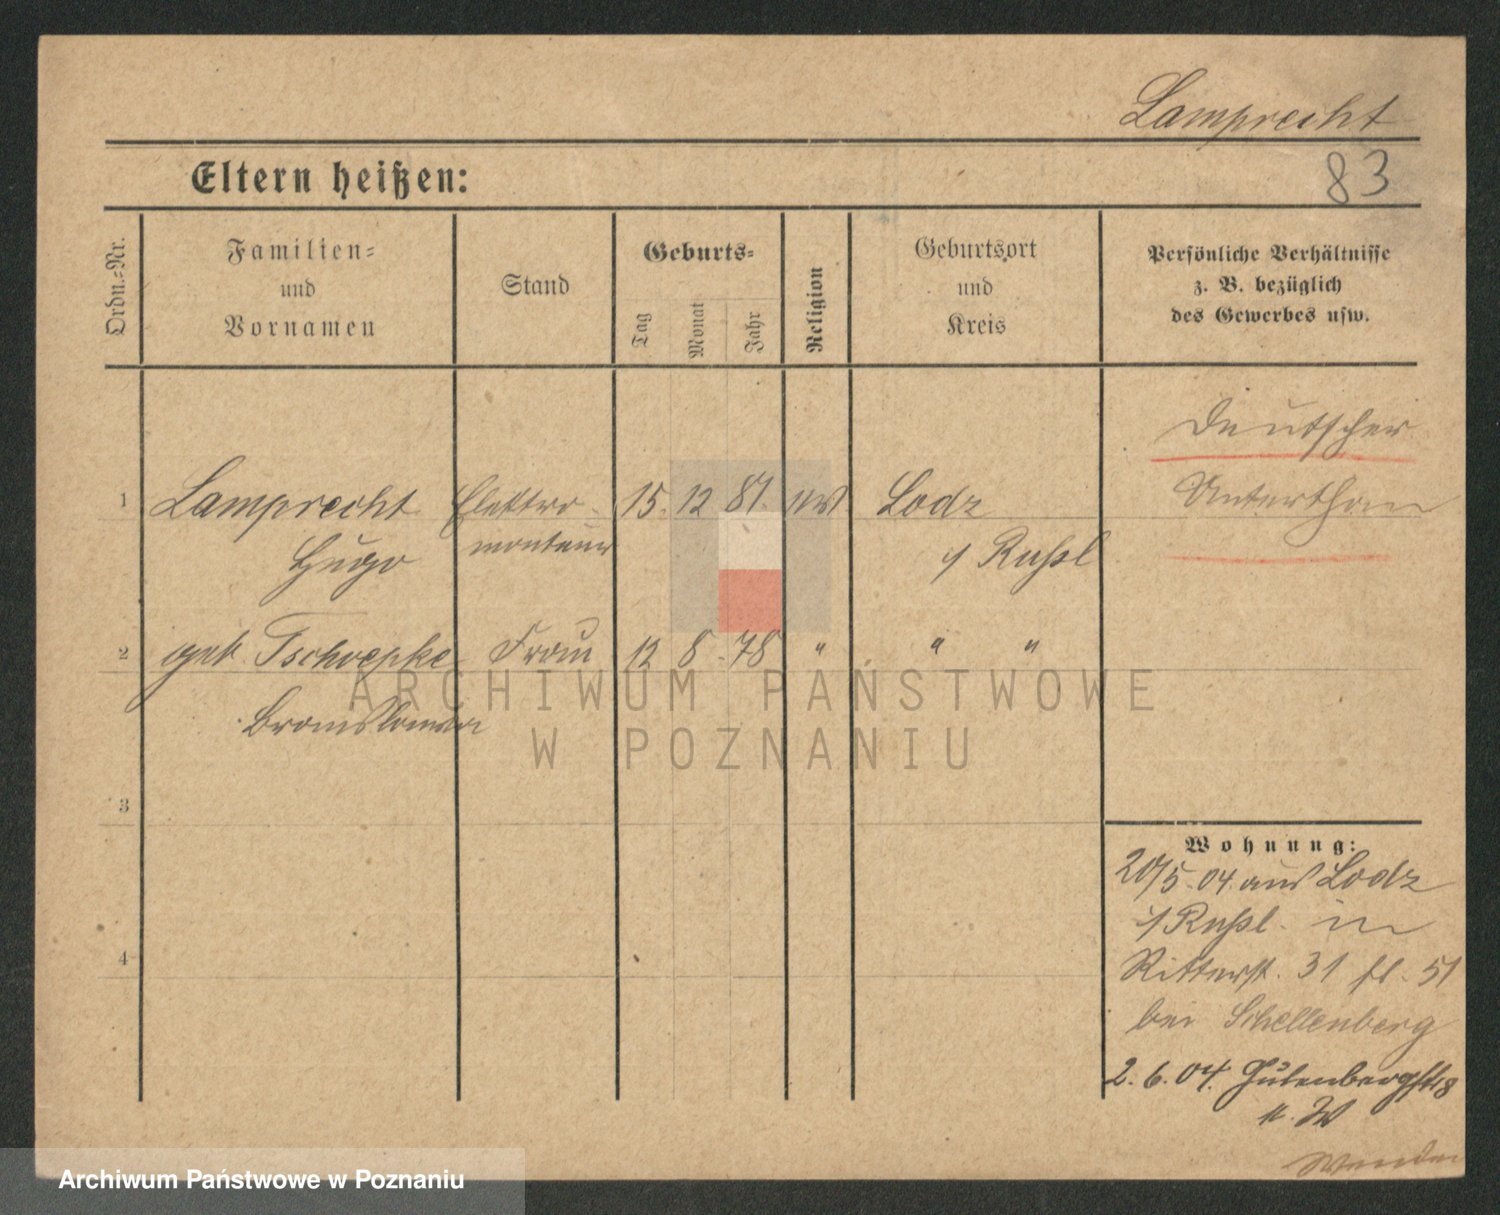 Lamprecht
83
Eltern heißen:
Ordn.-Nr.
Familien- und Vornamen
Stand
Geburts-
Tag
Monat
Jahr
Religion
Geburtsort und Kreis
Persönliche Verhältnisse z. B. bezüglich des Gewerbes usw.
Deutscher
Unterthan
1 Lamprecht Elektro- 15. 12 81. Lodz
Hugo monteur Rußl
2 geb. Tschoepke Frau 12 8. 78 " " "
3
4
Wohnung:
20/5. 04. aus Lodz
Rußl. in
Ritterst. 31 51
bei Schellenberg
2. 6. 04. Gutenbergst 8
Wenden
ARCHIWUM PAŃSTWOWE
W POZNANIU
Archiwum Państwowe w Poznaniu